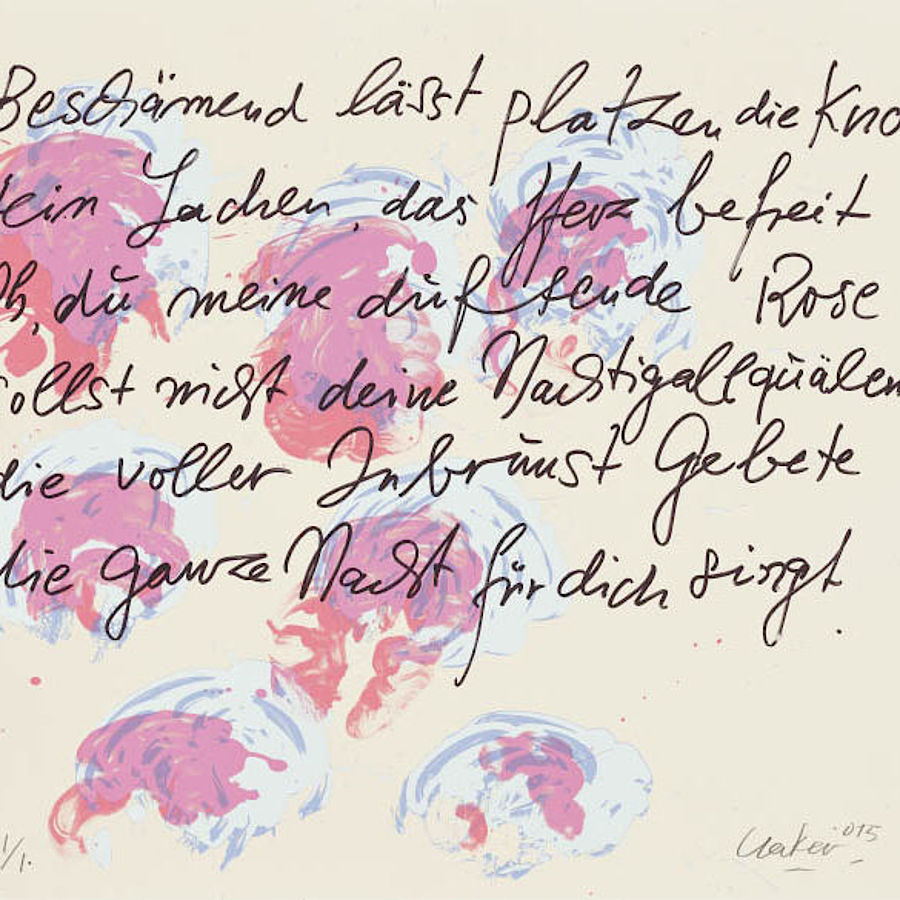 Beschämend lässt platzen die Kno
dein Lachen, das Herz befreit
Oh, du meine duftende Rose
sollst nicht deine Nachtigall quälen
die voller Inbrunst Gebete
die ganze Nacht für dich singt.
1/1.
Uecker 015